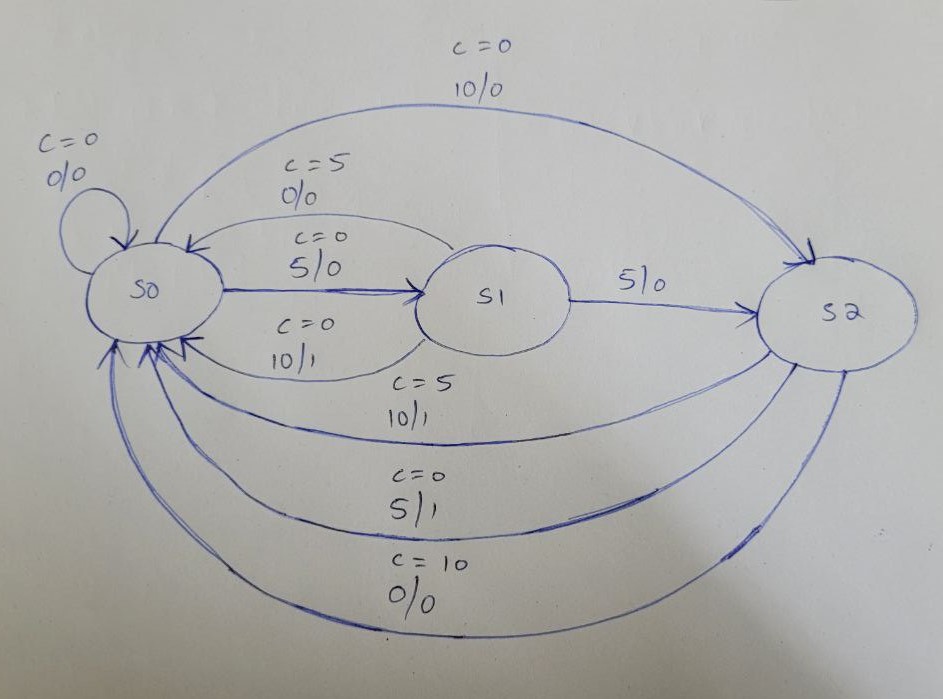 c = 0
10/0
c = 0
0/0
c = 5
0/0
c = 0
5/0
S0
S1
5/0
S2
c = 0
10/1
c = 5
10/1
c = 0
5/1
c = 10
0/0